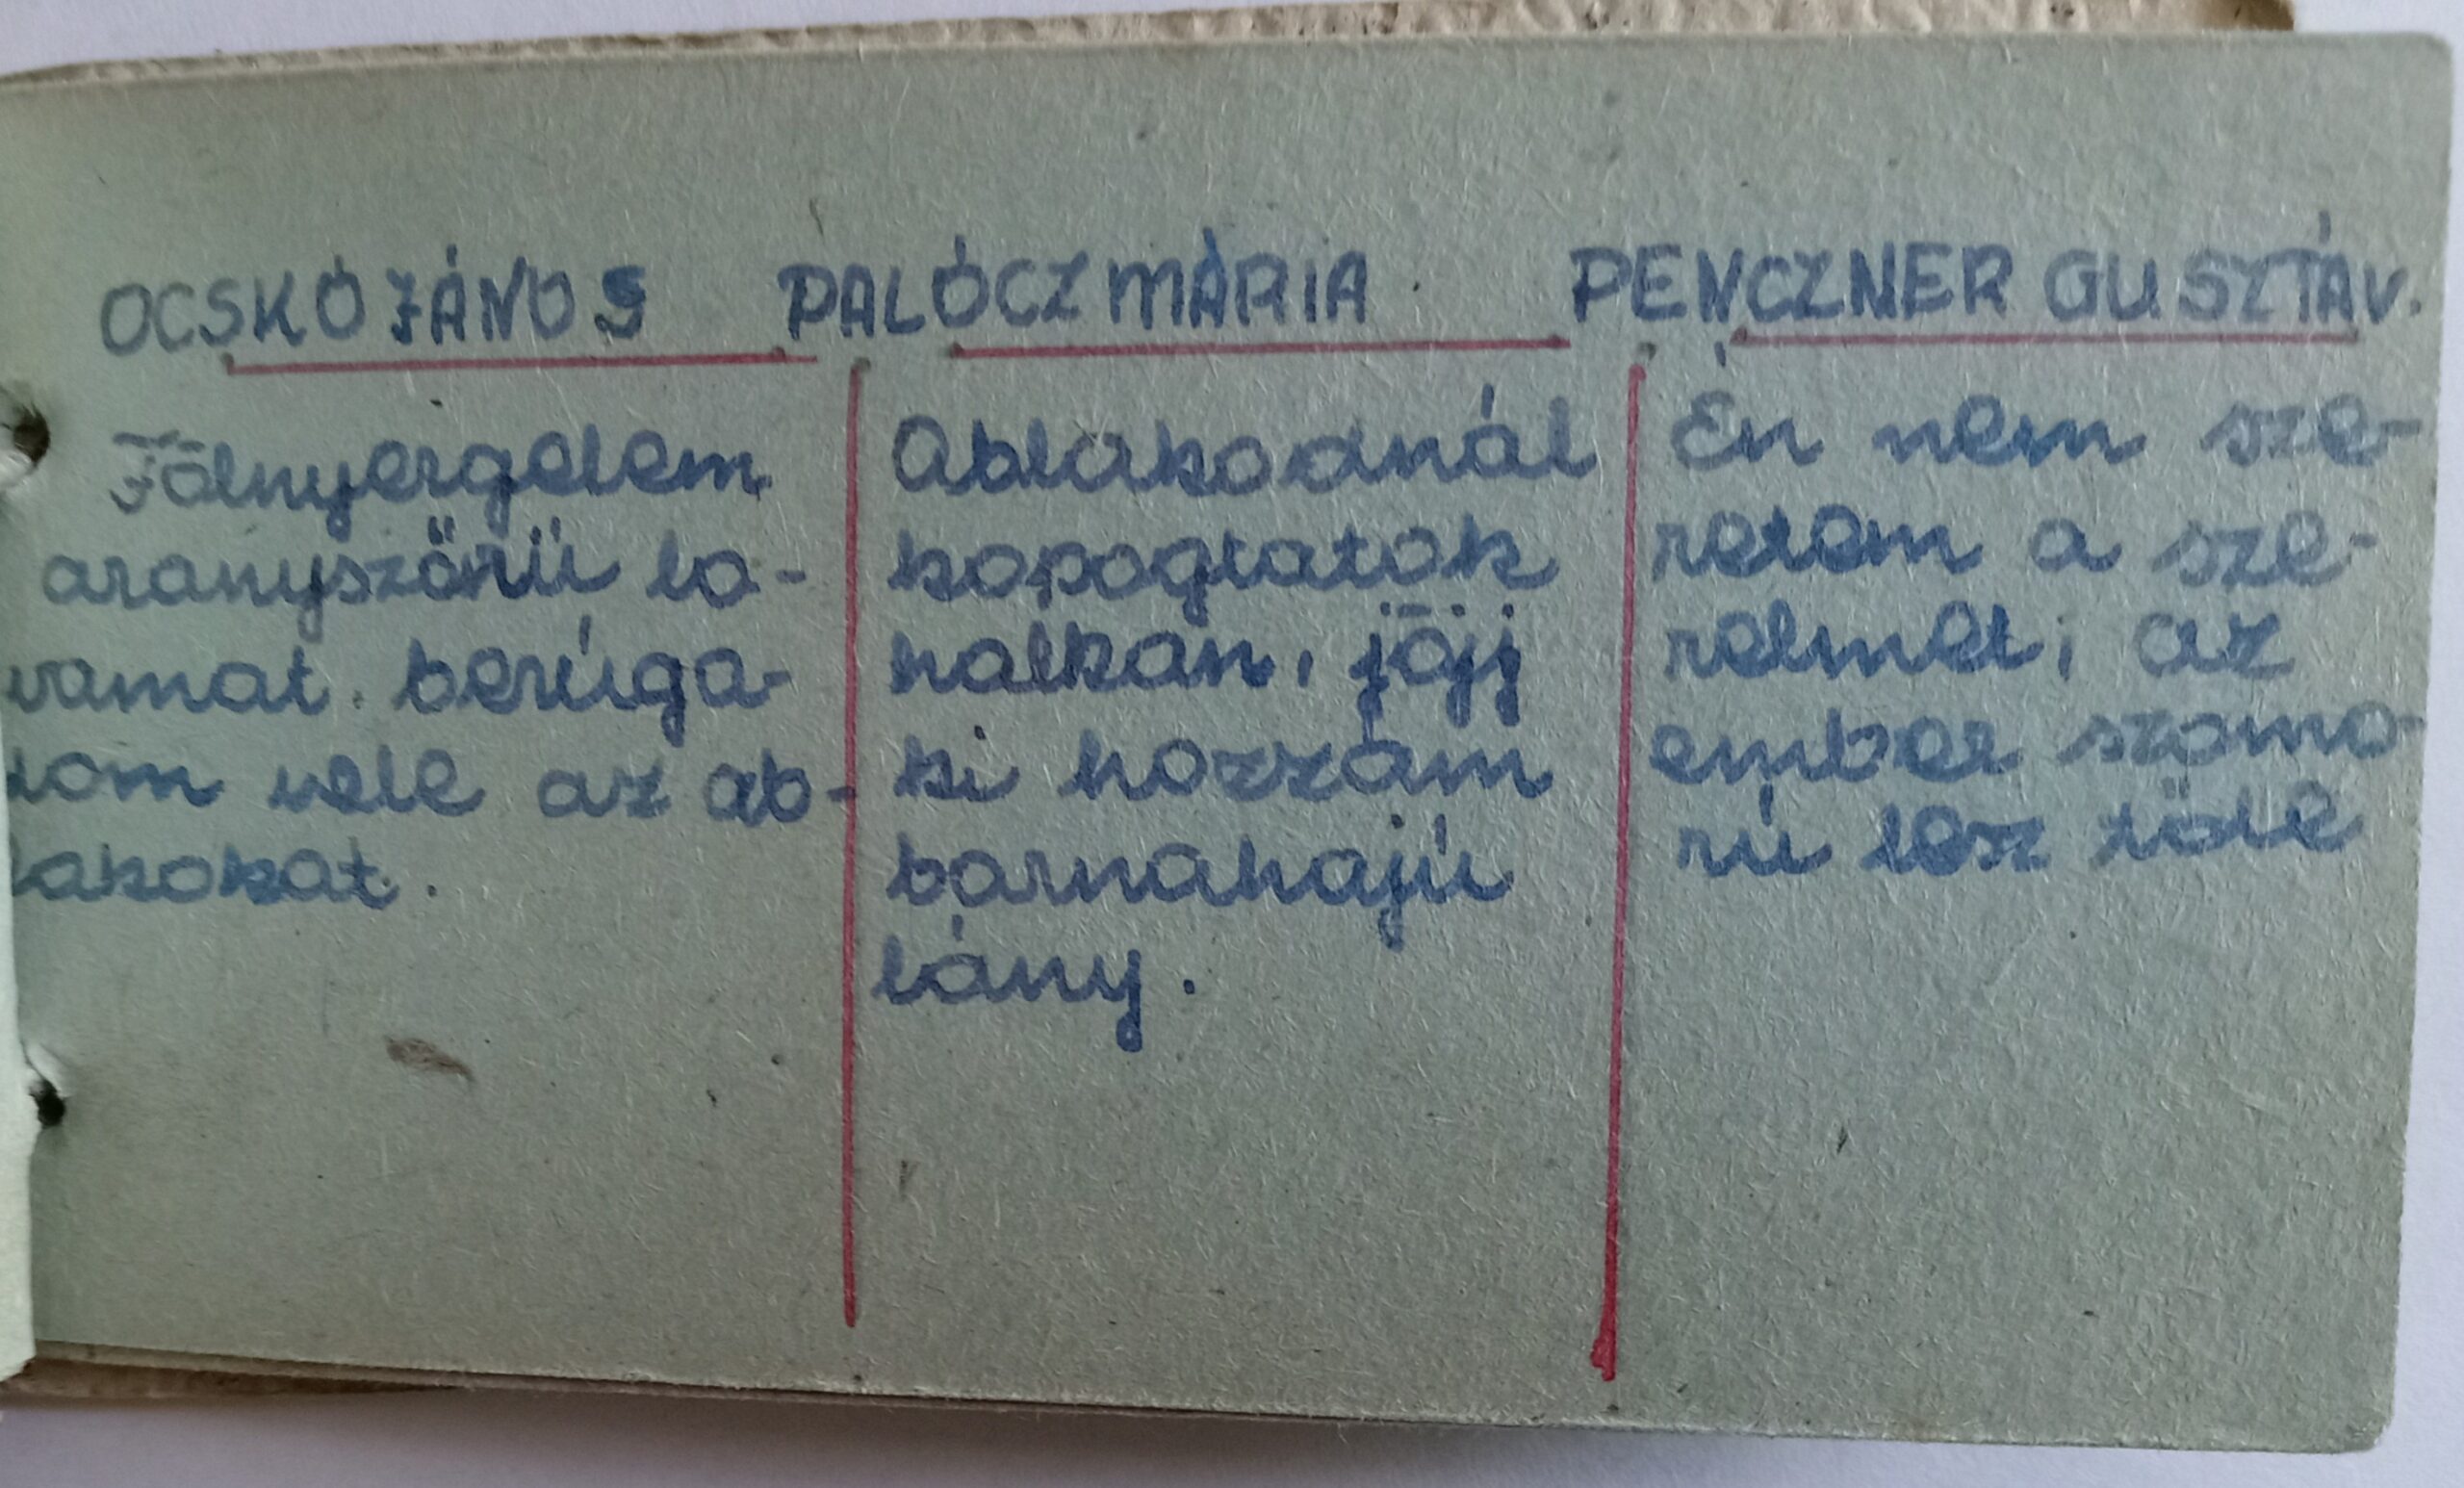 OCSKÓ JÁNOS
Fölnyergelem
aranyszőrü lo-
vamat. berúga-
tom vele az ab-
lakokat.
PALÓCZ MÁRIA
Ablakodnál
kopogtatok
halkan, jöjj
ki hozzám
barnahajú
lány.
PENCZNER GUSZTÁV.
Én nem sze-
retem a sze-
relmet, az
ember szomo-
rú lesz töle